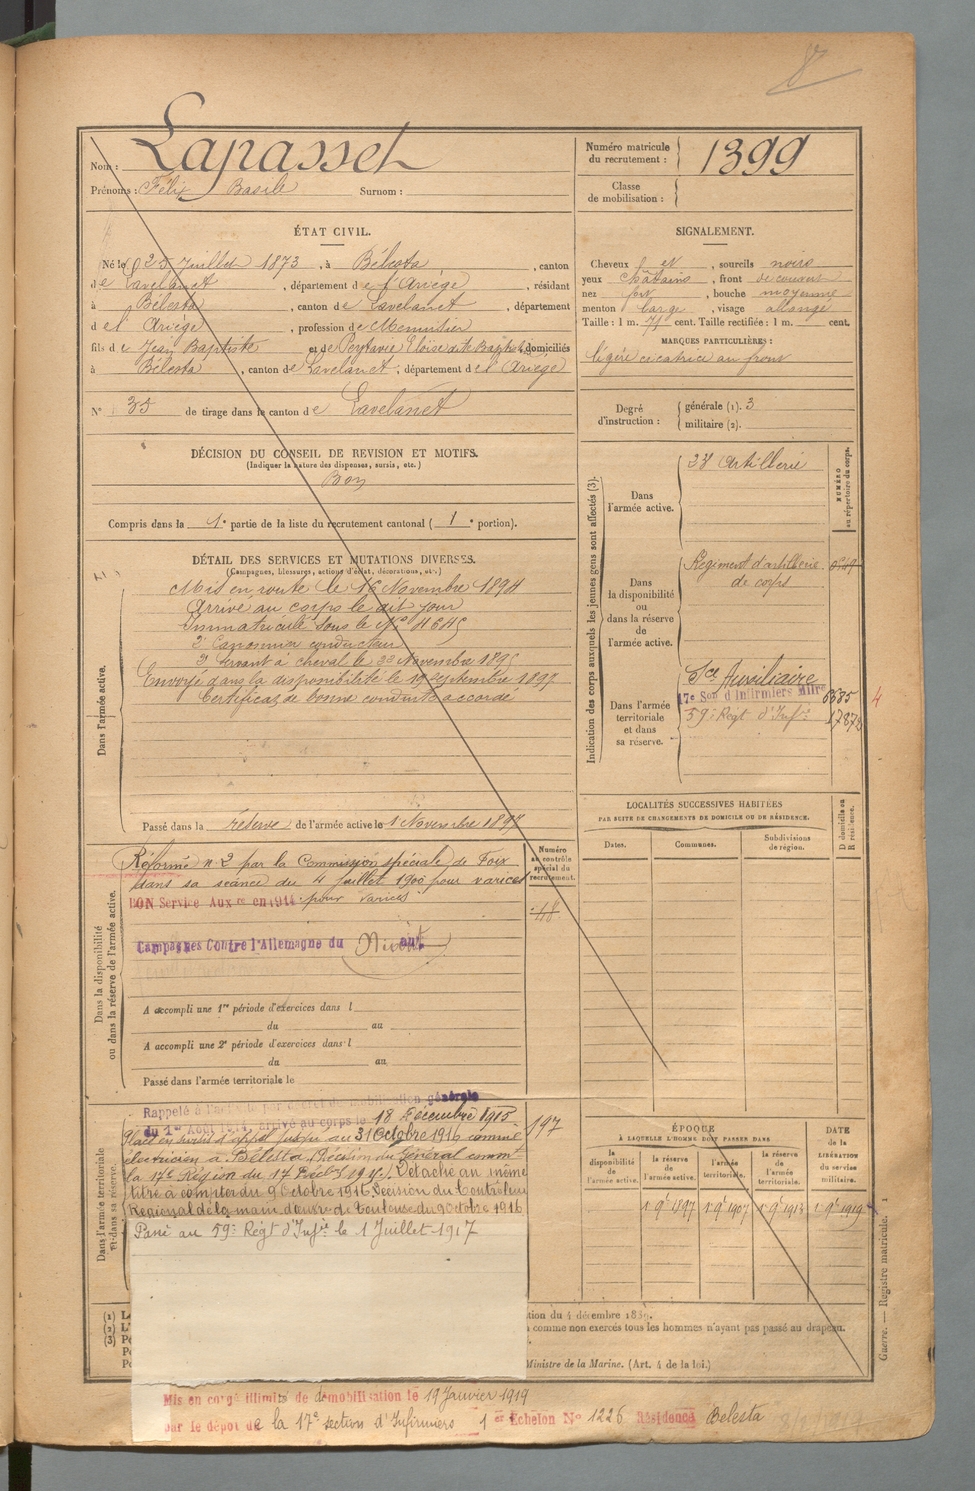 Nom : Lapasset
Prénoms : Félix Basile Surnom :
Numéro matricule du recrutement : 1399
Classe de mobilisation :
ÉTAT CIVIL.
Né le 25 Juillet 1873, à Bélesta, canton
de Lavelanet, département de l'Ariège, résidant
à Bélesta, canton de Lavelanet, département
de l'Ariège, profession de Menuisier
fils de Jean Baptiste et de Peytavie Eloïse dite Baptistine, domiciliés
à Bélesta, canton de Lavelanet, département de l'Ariège
N° 35 de tirage dans le canton de Lavelanet
SIGNALEMENT.
Cheveux et, sourcils noirs
yeux châtains, front découvert
nez fort, bouche moyenne
menton large, visage allongé
Taille : 1 m. 71 cent. Taille rectifiée : 1 m. cent.
MARQUES PARTICULIÈRES :
légère cicatrice au front
Degré d'instruction : générale (1). 3
militaire (2).
DÉCISION DU CONSEIL DE REVISION ET MOTIFS.
(Indiquer la nature des dispenses, sursis, etc.)
Bon
Compris dans la 1e partie de la liste du recrutement cantonal ( 1e portion).
DÉTAIL DES SERVICES ET MUTATIONS DIVERSES.
(Campagnes, blessures, actions d'éclat, décorations, etc.)
Dans l'armée active.
Mis en route le 16 Novembre 1894
Arrivé au corps le dit jour
Immatriculé sous le N° 4645
2e Canonnier conducteur
2e Servant à cheval le 22 Novembre 1895
Envoyé dans la disponibilité le 19 septembre 1897
Certificat de bonne conduite accordé
Passé dans la réserve de l'armée active le 1 Novembre 1897
Indication des corps auxquels les jeunes gens sont affectés (3).
NUMÉRO au répertoire du corps.
Dans l'armée active.
23e Artillerie
Dans la disponibilité ou dans la réserve de l'armée active.
Régiment d'artillerie
de corps
Dans l'armée territoriale et dans sa réserve.
Sce Auxiliaire
17e Son d'Infirmiers Milres 6685 4
59e Régt d'Infie 17872
LOCALITÉS SUCCESSIVES HABITÉES
PAR SUITE DE CHANGEMENTS DE DOMICILE OU DE RÉSIDENCE.
Dates. Communes. Subdivisions de région. D domicile ou R résidence.
Dans la disponibilité ou dans la réserve de l'armée active.
Numéro au contrôle spécial du recrutement.
Réformé n° 2 par la Commission spéciale de Foix
dans sa séance du 4 juillet 1900 pour varices
BON Service Auxre en 1914 pour varices
Campagnes Contre l'Allemagne du
A accompli une 1re période d'exercices dans l
du au
A accompli une 2e période d'exercices dans l
du au
Passé dans l'armée territoriale le
Dans l'armée territoriale et dans sa réserve.
Rappelé à l'activité par décret de mobilisation générale
du 1er Août 1914, arrivé au corps le 18 Décembre 1915
197
Placé en sursis d'appel jusqu'au 31 Octobre 1916 comme
électricien à Bélesta, (Décision du Général commt
la 17e Région du 17 Décbre 1915) Détaché au même
titre à compter du 9 Octobre 1916. Décision du Contrôleur
Régional de la main d'œuvre de Toulouse du 9 Octobre 1916
Passé au 59e Régt d'Infie le 1 Juillet 1917
ÉPOQUE
À LAQUELLE L'HOMME DOIT PASSER DANS
la disponibilité de l'armée active. la réserve de l'armée active. l'armée territoriale. la réserve de l'armée territoriale. DATE de la LIBÉRATION du service militaire.
1 9bre 1897 1 9bre 1907 1 9bre 1913 1 9bre 1919
(1) L
(2) L'
(3) Pe
tion du 4 décembre 1889.
comme non exercés tous les hommes n'ayant pas passé au drapeau.
Ministre de la Marine. (Art. 4 de la loi.)
Guerre. — Registre matricule. 1
Mis en congé illimité de démobilisation le 19 Janvier 1919
par le dépôt de la 17e section d'Infirmiers 1er Echelon N° 1226 Résidence Bélesta